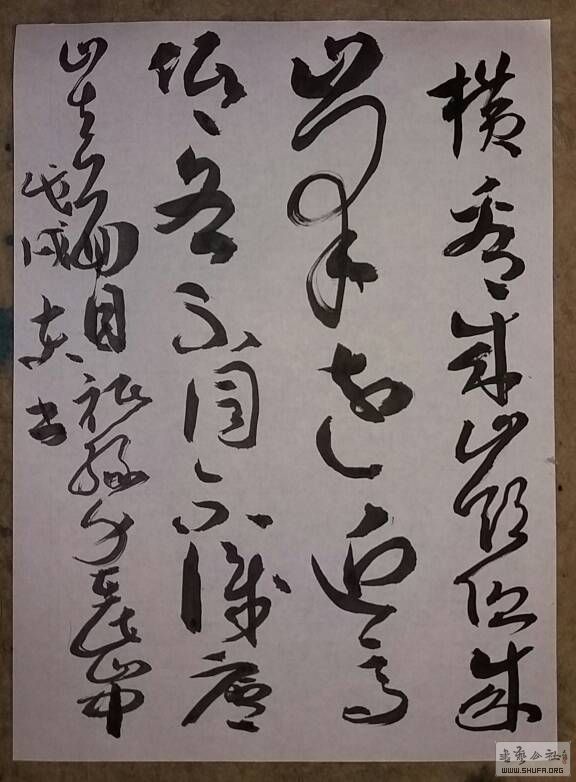 横看成嶺侧成
峯远近高
低各不同不識廬
山真面目祇緣身在此山中
戊戌书
書藝公社
WWW.SHUFA.ORG